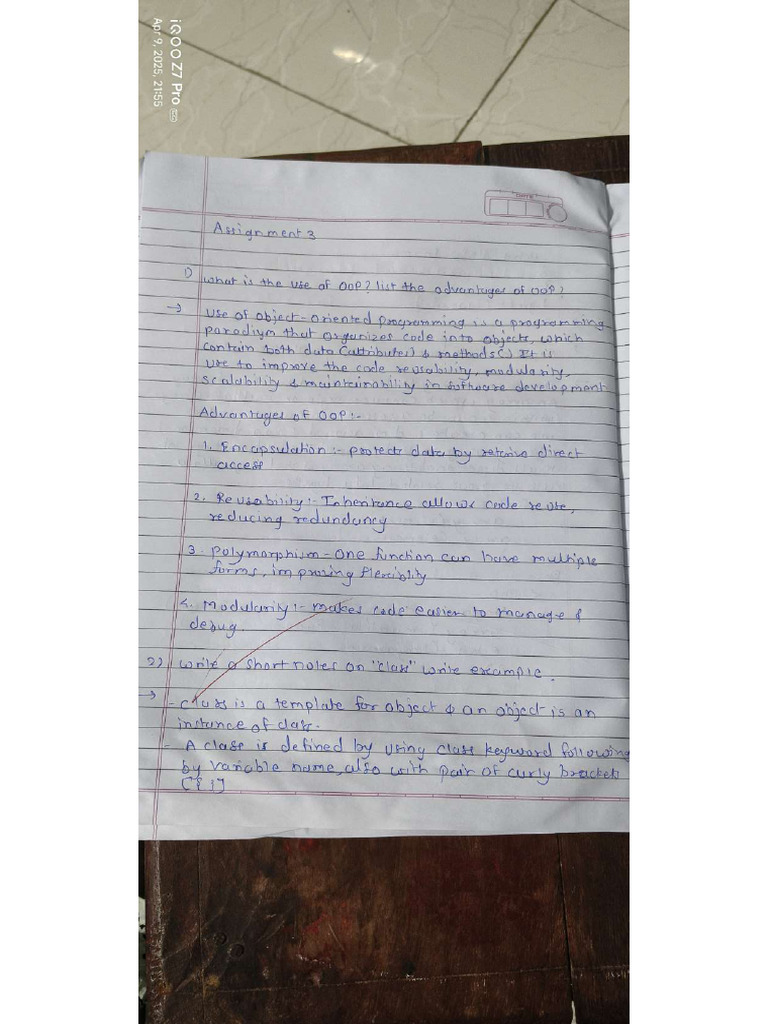 iQOO Z7 Pro 5G
Apr 9, 2025, 21:55
Assignment 3
1) what is the use of OOP? list the advantages of OOP?
→ Use of object-oriented programming is a programming
paradigm that organizes code into objects, which
contain both data (attributes) & methods() It is
use to improve the code reusability, modularity,
scalability & maintainability in software development
Advantages of OOP:-
1. Encapsulation:- protects data by direct
access
2. Reusability:- Inheritance allows code reuse,
reducing redundancy
3. polymorphism - one function can have multiple
forms, improving flexiblity
4. Modularity:- makes code easier to manage &
debug.
2) write a short notes on "class" write example.
→ - class is a template for object & an object is an
instance of class.
- A class is defined by using class keyword following
by variable name, also with pair of curly brackets
[{}]